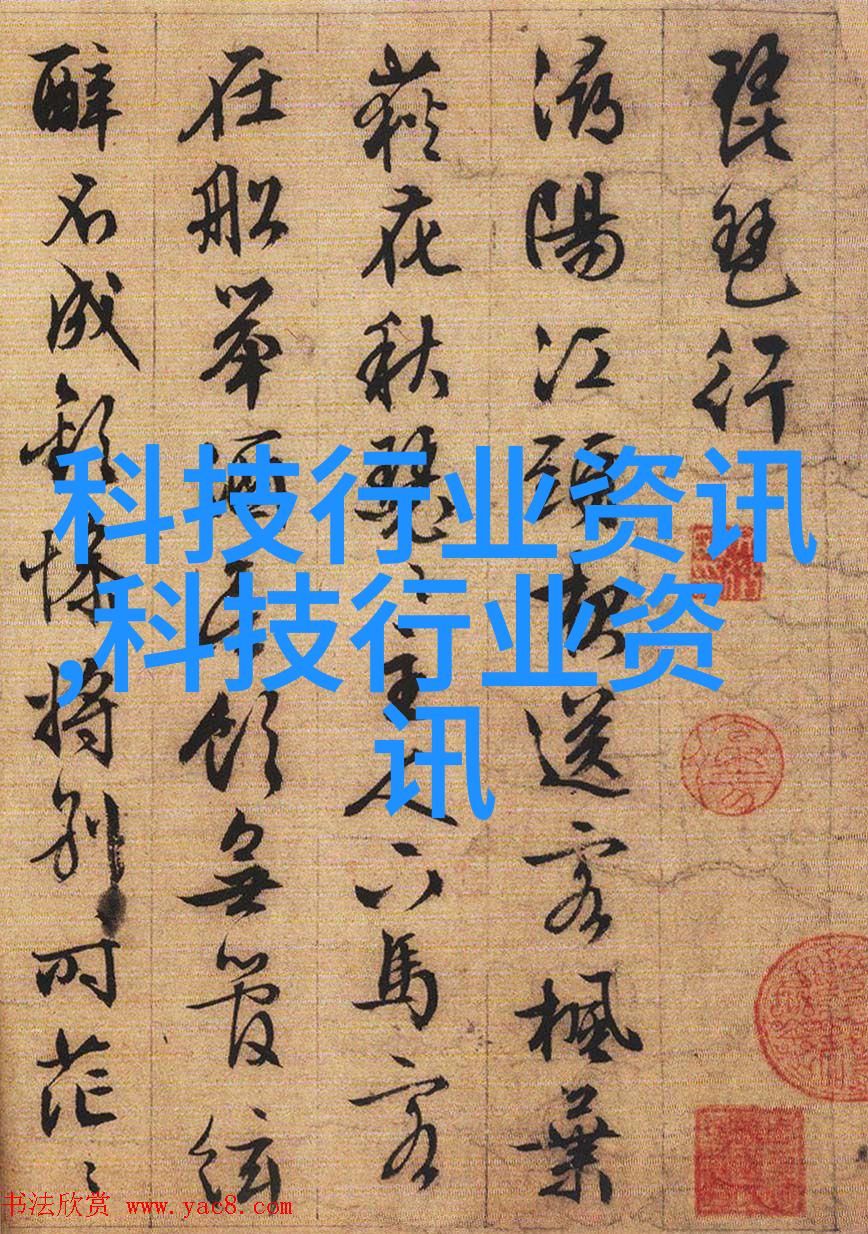 琵琶行
潯陽江頭夜送客楓葉
荻花秋瑟々主人下馬客
在船舉酒欲飲無管絃
醉不成歡慘將別々時茫々
科技行业资讯
,科技行业资
讯
书法欣赏 www.yac8.com